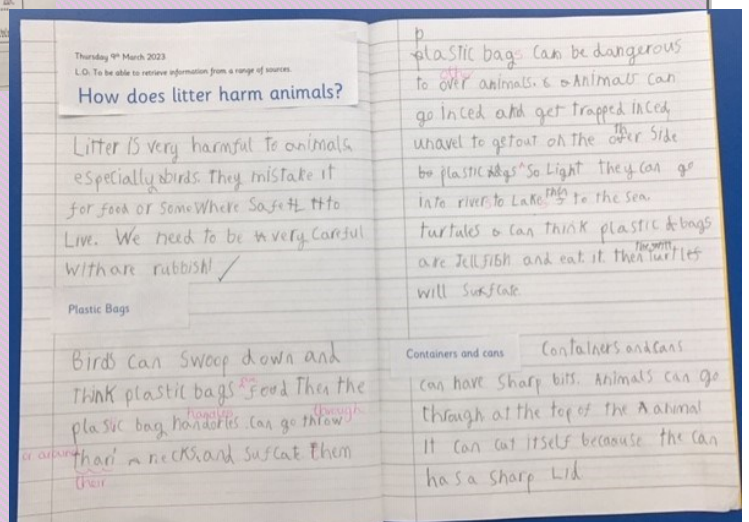 Thursday 9th March 2023
L.O: To be able to retrieve information from a range of sources.
How does litter harm animals?
Litter is very harmful to animals
especially birds. They mistake it
for food or somewhere safe to
Live. We need to be very careful
with are rubbish!
Plastic Bags
Birds can swoop down and
Think plastic bags are food Then the
handles through
plastic bag handorles can go throw
or around thari necks, and sufcat them
their
p
plastic bags can be dangerous
other
to over animals. Animals can
go inced and get trapped inced,
unavel to get out on the other side
plastic bags so Light they can go
into river, to Lake, to the sea.
turtales can think plastic bags
are Jellfish and eat it. then turtles
will
Containers and cans
Containers and cans
can have sharp bits. Animals can go
through at the top of the animal
It can cut itself becaause the can
has a sharp Lid